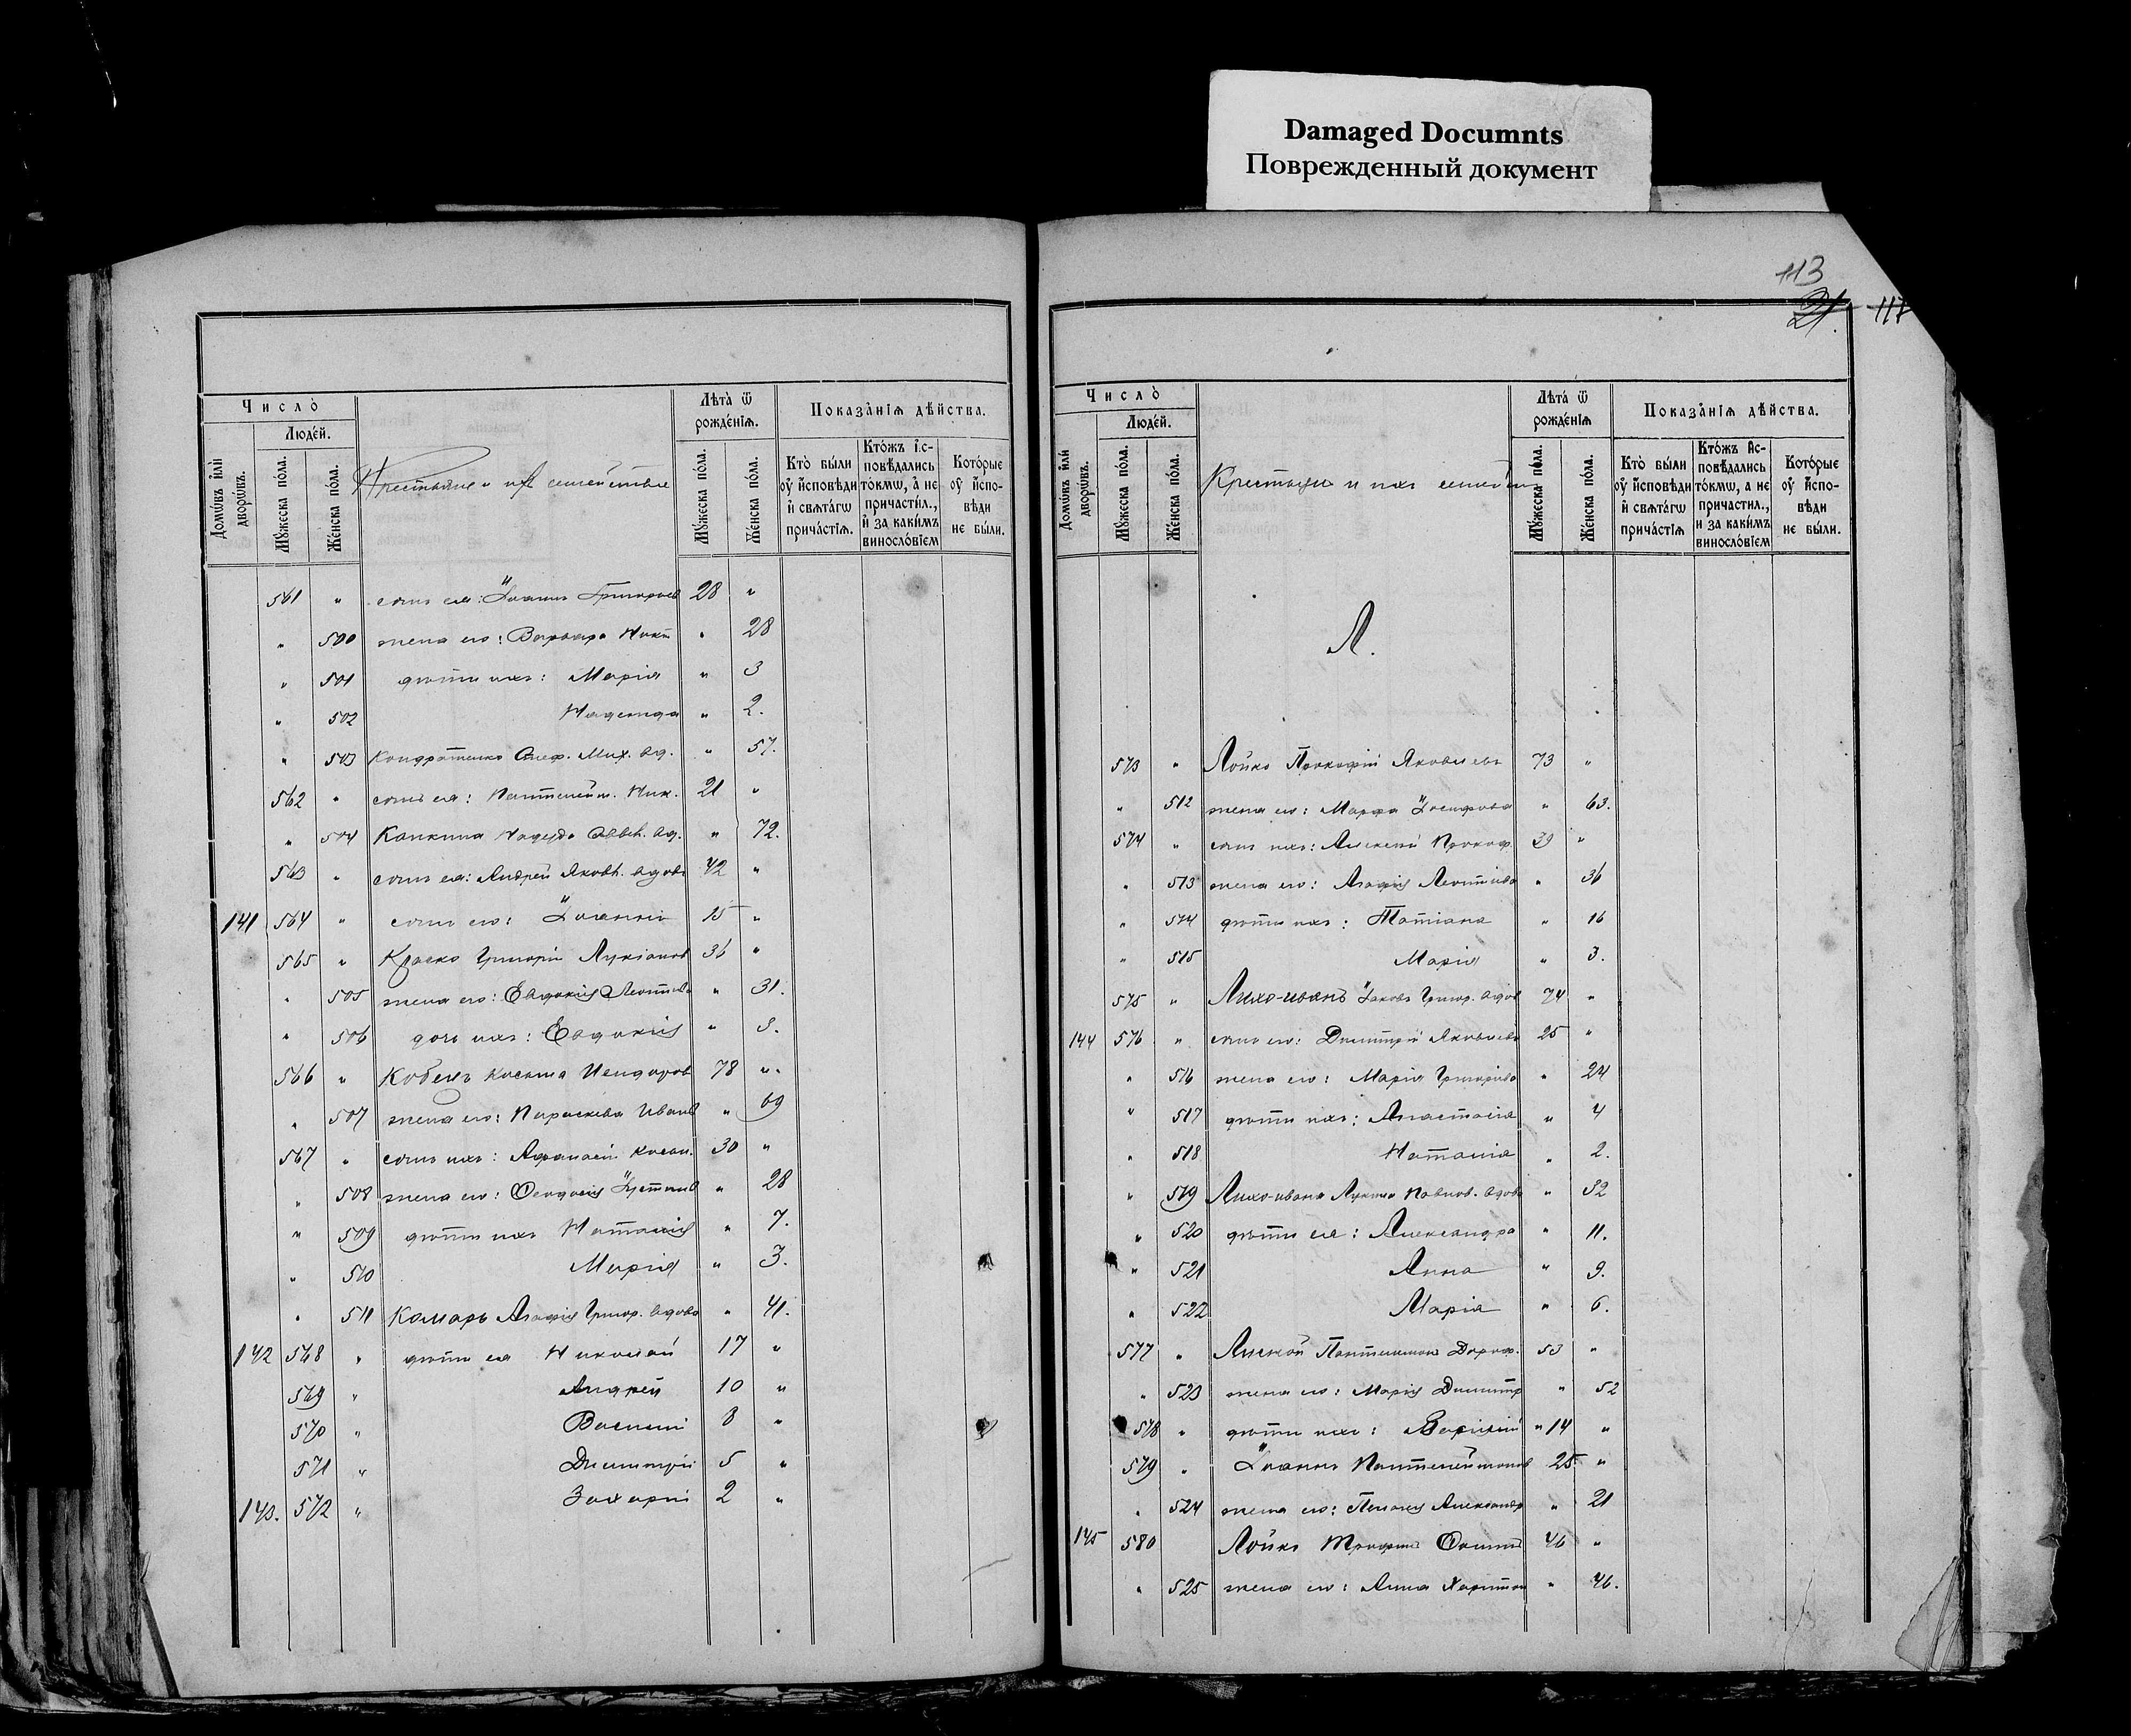 Damaged Documnts
Поврежденный документ
113
21. 117
Число̀
Людѐй.
Домѡ́въ и҆лѝ дворѡ́въ.
Мꙋ́жеска по́ла.
Же́нска по́ла.
Крестьяне и их семейства
Лѣта̀ ѿ рождѐнїѧ.
Мꙋ́жеска по́ла.
Же́нска по́ла.
Показа̑нїѧ дѣ́йства.
Кто̀ бы́ли ᲂу҆ и҆́сповѣди и҆ свѧта́гѡ прича́стїѧ.
Кто́жъ и҆с-повѣ́дались то́кмѡ, а҆ не причасти́л., и҆ за каки́мъ винослѡ́вїем
Кото́рые ᲂу҆ и҆́спо-вѣди не бы́ли.
561 " сынъ ея: Іоаннъ Григорьев 28 "
" 500 жена его: Варвара Никт " 28
" 501 дѣти ихъ: Марія " 3
" 502 Надежда " 2.
" 503 Кондратенко Стеф. Мих. вд. " 57.
562 " сынъ ея: Пантелейм. Ник. 21 "
" 504 Капкина Надежд. вд. " 72.
563 " сынъ ея: Андрей Яковл. вдовъ 42 "
141 564 " сынъ его: Іоаннъ 15 "
565 " Краско Григорій Лукіанов 36 "
" 505 жена его: Евдокія Леонтьева " 31.
" 506 дочь ихъ: Евдокія "
566 " Кобецъ Косьма 78 "
" 507 жена его: Параскева Иванов " 69
567 " сынъ ихъ: Афанасій Косьм. 30 "
" 508 жена его: Феодосія " 28
" 509 дѣти ихъ Наталія " 7.
" 510 Марія " 3.
" 511 Комарь Агафія Григор. вдова " 41.
142 568 " дѣти ея Николай 17 "
569 " Андрей 10 "
570 " Василій 8 "
571 " Димитрій 5 "
143. 572 " Захарій 2 "
Число̀
Людѐй.
Домѡ́въ и҆лѝ дворѡ́въ.
Мꙋ́жеска по́ла.
Же́нска по́ла.
Крестьяне и ихъ семейства
Лѣта̀ ѿ рождѐнїѧ
Мꙋ́жеска по́ла.
Же́нска по́ла.
Показа̑нїѧ дѣ́йства.
Кто̀ бы́ли ᲂу҆ и҆́сповѣди и҆ свѧта́гѡ прича́стїѧ
Кто́жъ и҆с-повѣ́дались то́кмѡ, а не причастил., и за каки́мъ винослѡ́вїем
Кото́рые ᲂу҆ и҆́спо-вѣди не бы́ли.
Л.
573 " Лойко Прокофій Яковлевъ 73 "
" 512 жена его: Марфа Іосифова " 63.
574 " сынъ ихъ: Алексѣй Прокоф. 39 "
" 513 жена его: Агафія Леонтьева " 36
" 514 дѣти ихъ: Татіана " 16
" 515 Марія " 3.
575 " Лихо-иванъ Іаковъ Григор. вдов 74 "
144 576 " сынъ его: Димитрій Яковлевъ 25 "
" 516 жена его: Марія Григорьева " 24
" 517 дѣти ихъ: Анастасія " 4
" 518 Наталія " 2.
" 519 Лихо-ивана Павлов. вдова " 32
" 520 дѣти ея: Александра " 11.
" 521 Анна " 9.
" 522 Марія " 6.
577 " Пантелеимонъ Дороф. 53 "
" 523 жена его: Марія Димитр " 52
578 " дѣти ихъ: Василій " 14 "
579 " Іоаннъ Пантелеймонов 25 "
" 524 жена его: Пелагія Александр " 21
145 580 Лойко Трофимъ Фоминъ 46 "
" 525 жена его: Анна Харитон " 46.